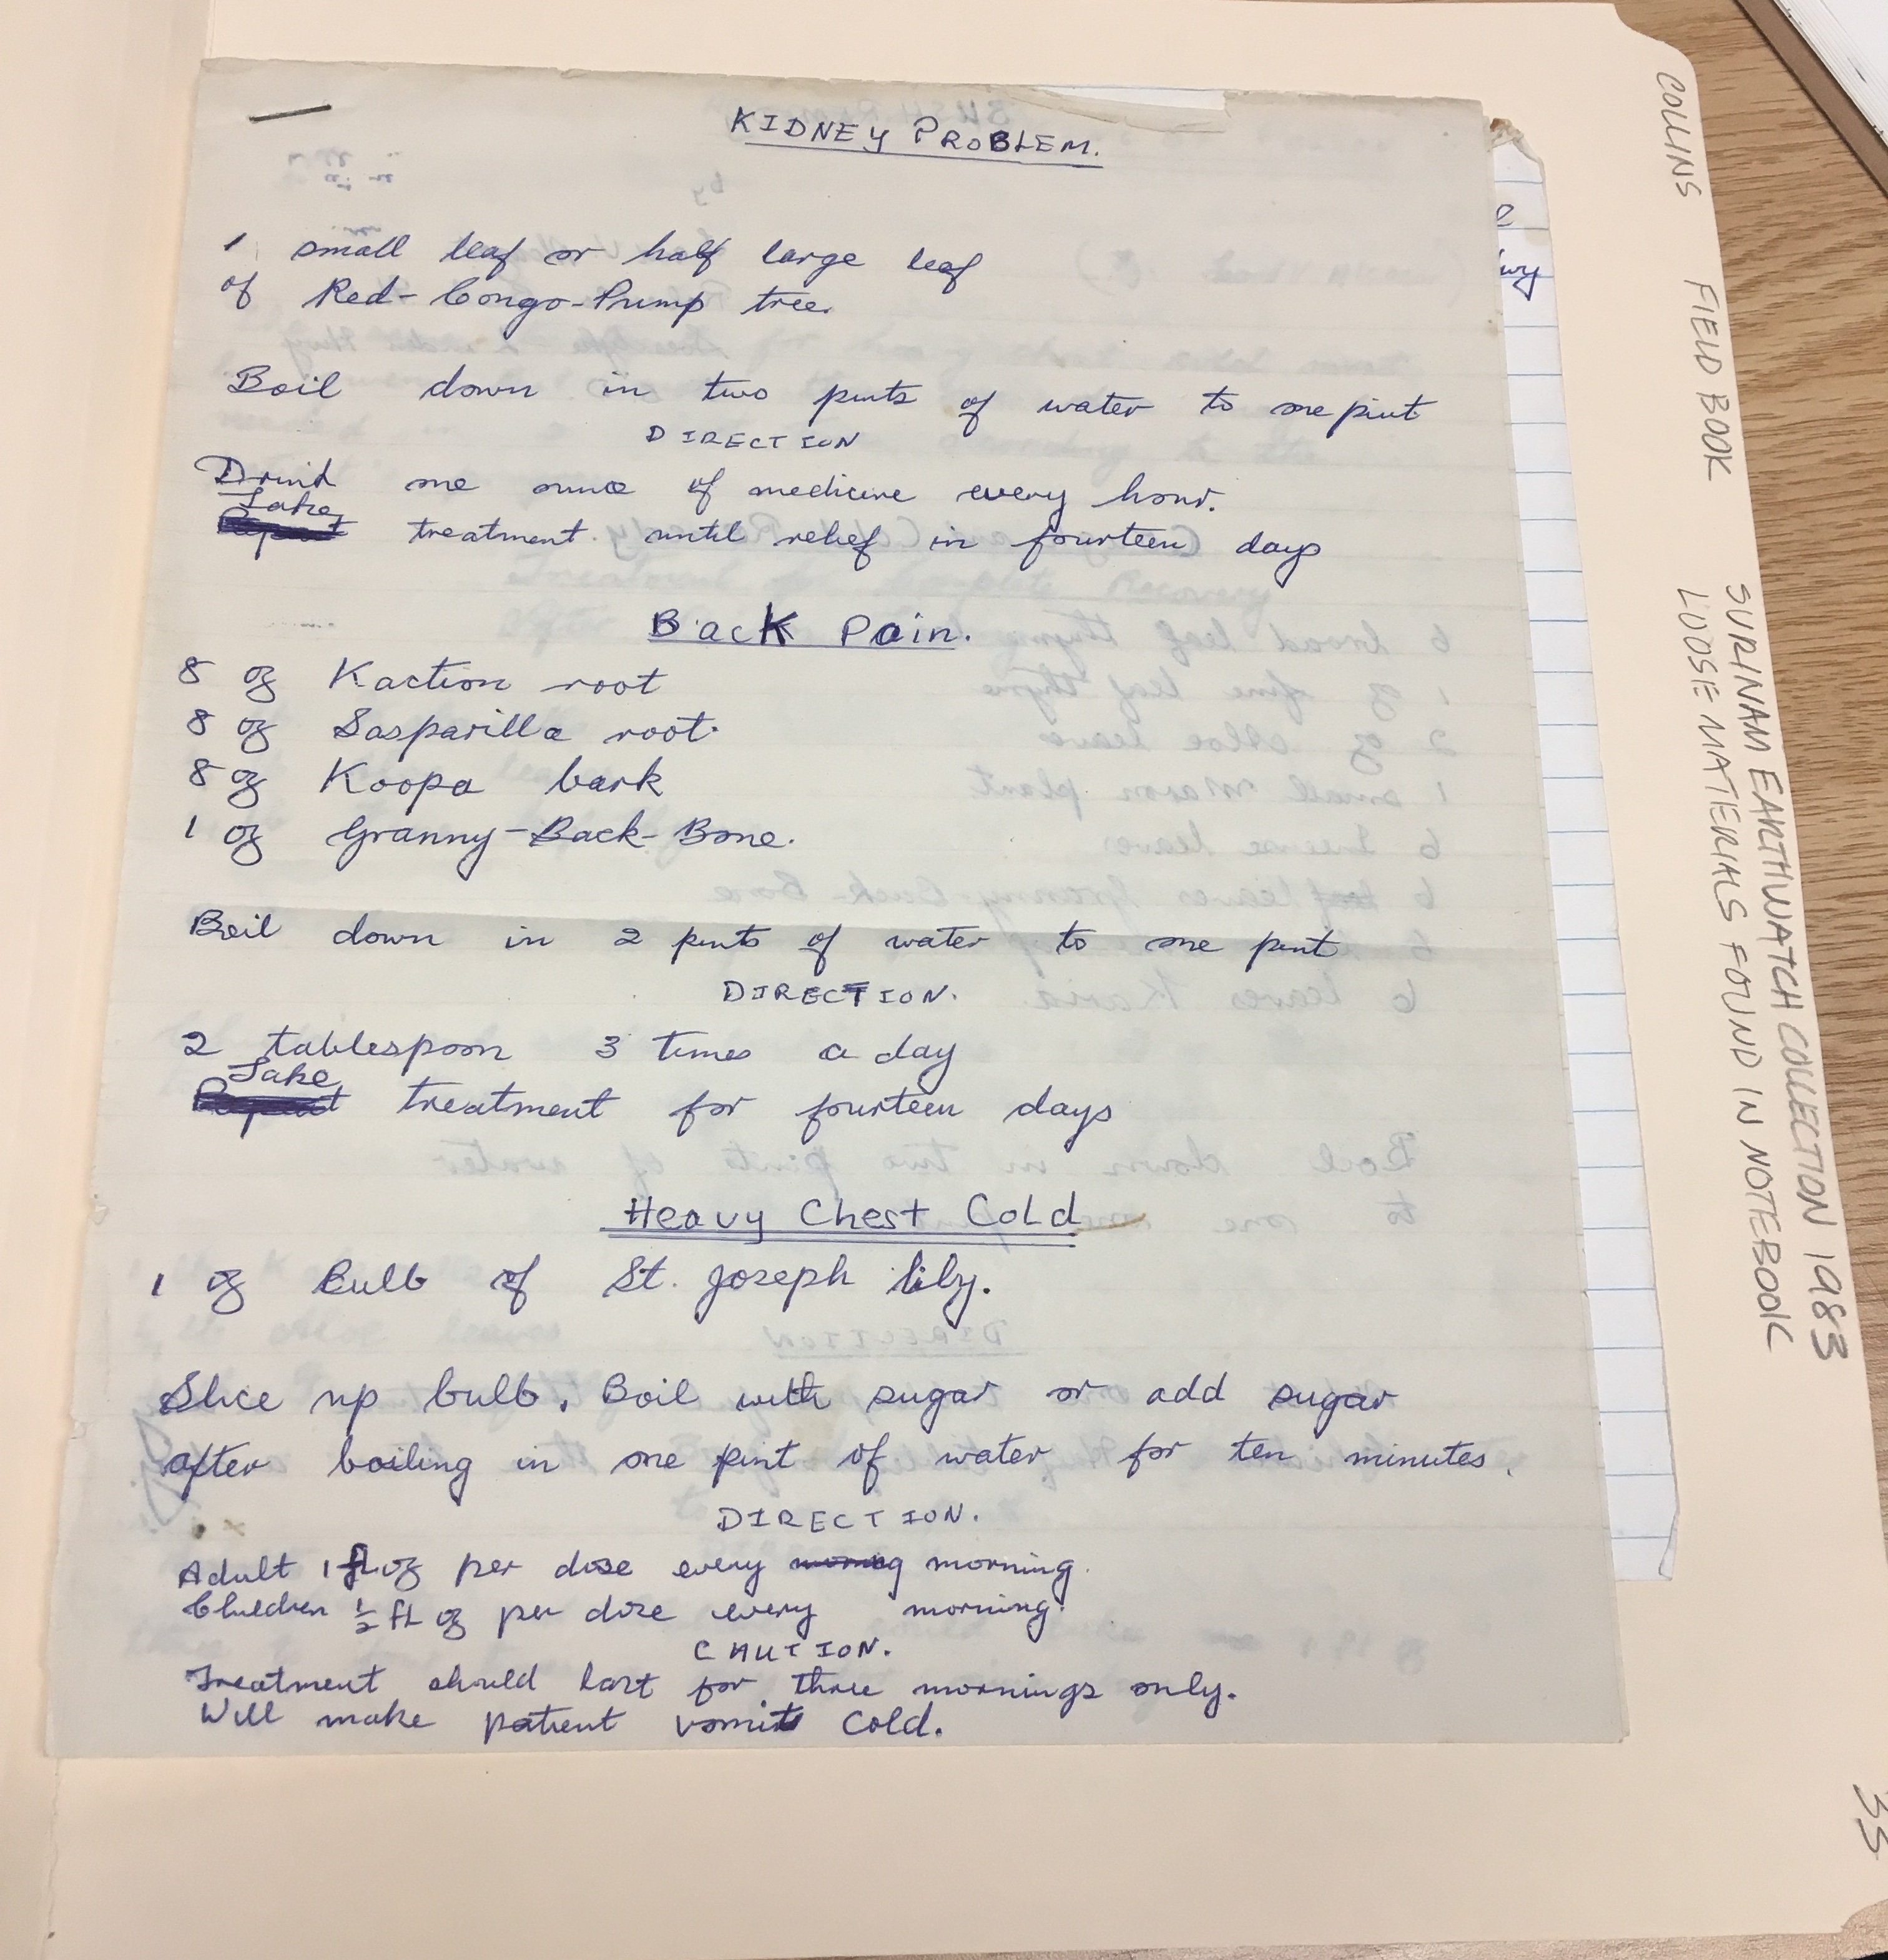 KIDNEY PROBLEM.
1 small leaf or half large leaf
of Red-Congo-Pump tree.
Boil down in two pints of water to one pint
DIRECTION
Drink one ounce of medicine every hour.
Take
treatment until relief in fourteen days
Back Pain.
8 oz Kaction root
8 oz Sasparilla root.
8 oz Koopa bark
1 oz Granny-Back-Bone.
Boil down in 2 pints of water to one pint
DIRECTION.
2 tablespoon 3 times a day
Take
treatment for fourteen days
Heavy Chest Cold
1 oz Bulb of St. Joseph lily.
Slice up bulb. Boil with sugar or add sugar
after boiling in one pint of water for ten minutes.
DIRECTION.
Adult 1 fl oz per dose every morning.
Children ½ fl oz per dose every morning.
CAUTION.
Treatment should last for three mornings only.
Will make patient vomit cold.
COLLINS FIELD BOOK
SURINAM EARTHWATCH COLLECTION 1983
LOOSE MATERIALS FOUND IN NOTEBOOK
35